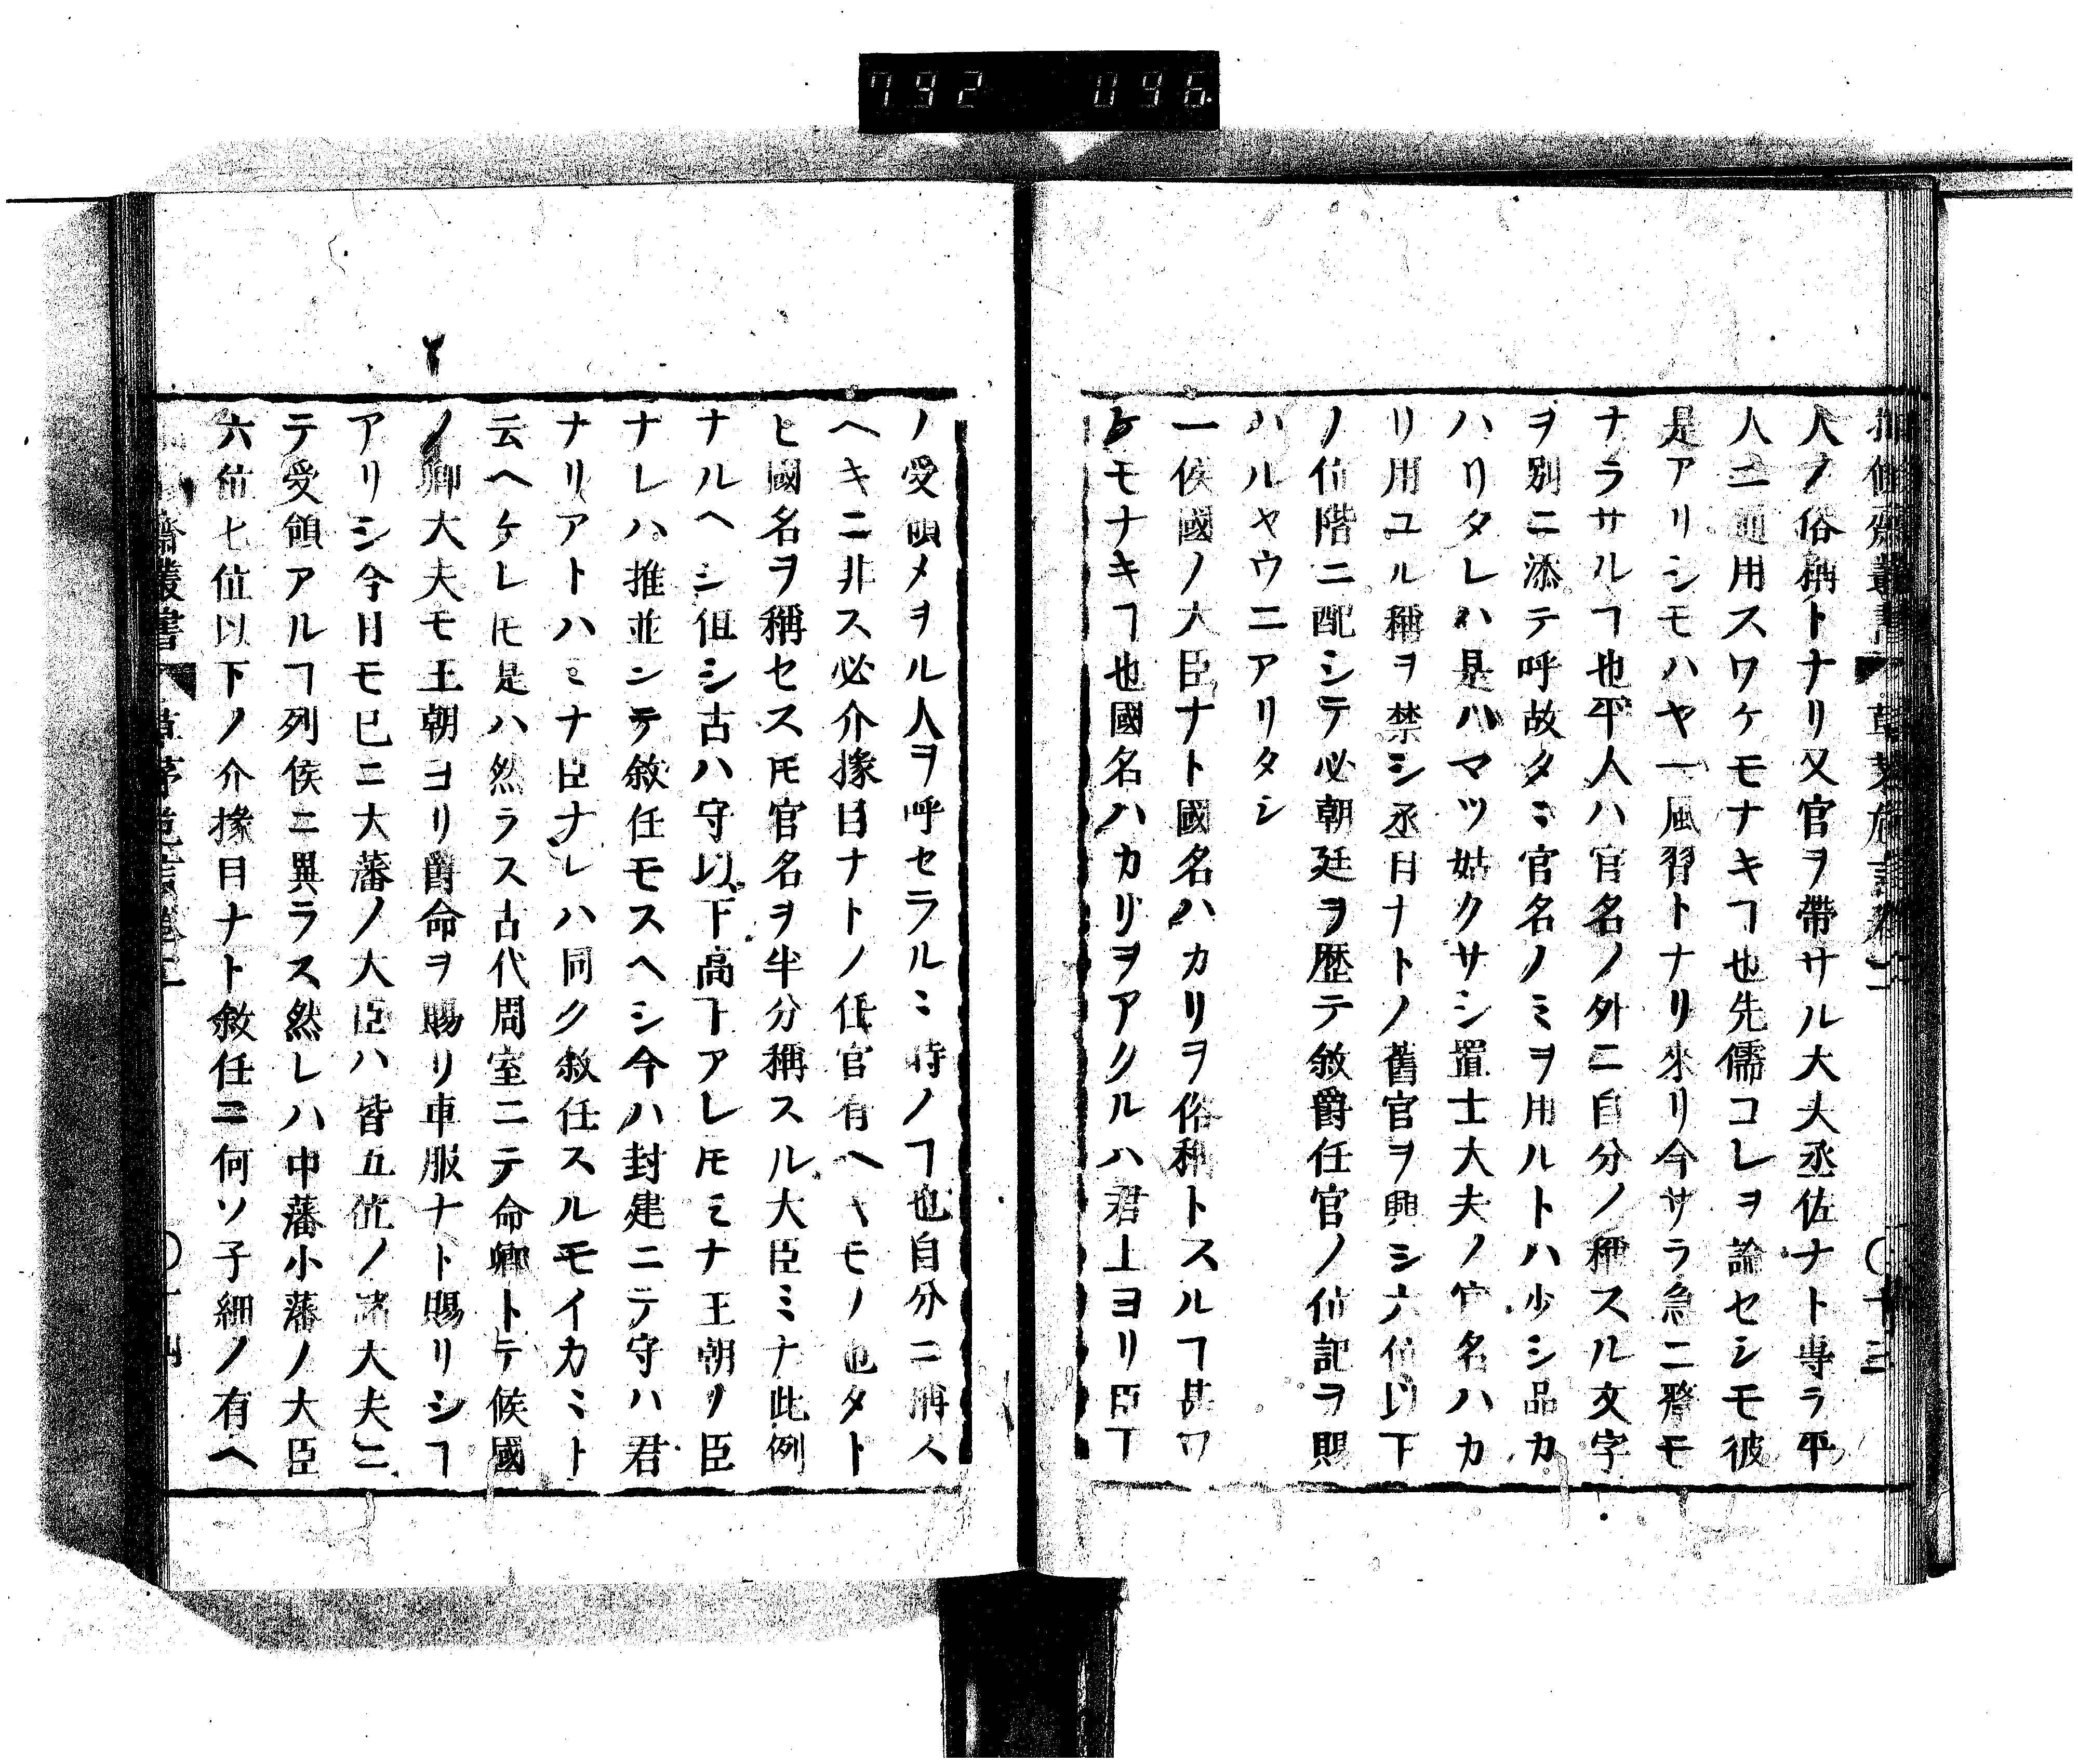 792 046
人ノ俗稱トナリ又官ヲ帶サル大夫丞佐ナト専ラ平
人ニ通用スワケモナキヿ也先儒コレヲ論セシモ彼
是アリシモハヤ一風習トナリ來リ今サラ急ニ發モ
ナラサルヿ也平人ハ官名ノ外ニ自分ノ稱スル文字
ヲ別ニ添テ呼故タミ官名ノミヲ用ルトハ少シ品カ
ハリタレハ是ハマツ姑クサシ置士大夫ノ官名ハカ
リ用ユル稱ヲ禁シ丞目ナトノ舊官ヲ興シ六位以下
ノ位階ニ配シテ必朝廷ヲ歴テ敘爵任官ノ位記ヲ賜
ハルヤウニアリタシ
一侯國ノ大臣ナト國名ハカリヲ俗稱トスルヿ甚ワ
ケモナキヿ也國名ハカリヲアクルハ君上ヨリ臣下
ノ受領メヲル人ヲ呼セラルミ時ノヿ也自分ニ稱ス
ヘキニ非ス必介掾目ナトノ任官有ヘキモノ也タト
ヒ國名ヲ稱セスモ官名ヲ半分稱スル大臣ミナ此例
ナルヘシ但シ古ハ守以下高下アレモミナ王朝ノ臣
ナレハ推並ンテ敘任モスヘシ今ハ封建ニテ守ハ君
ナリアトハミナ臣ナレハ同ク敘任スルモイカミト
云ヘケレ𪜈是ハ然ラス古代周室ニテ命卿トテ候國
ノ卿大夫モ王朝ヨリ爵命ヲ賜リ車服ナト賜リシヿ
アリシ今日モ已ニ大藩ノ大臣ハ皆五位ノ諸大夫ニ
テ受領アルヿ列侯ニ異ラス然レハ中藩小藩ノ大臣
六位七位以下ノ介掾目ナト敘任ニ何ソ子細ノ有ヘ